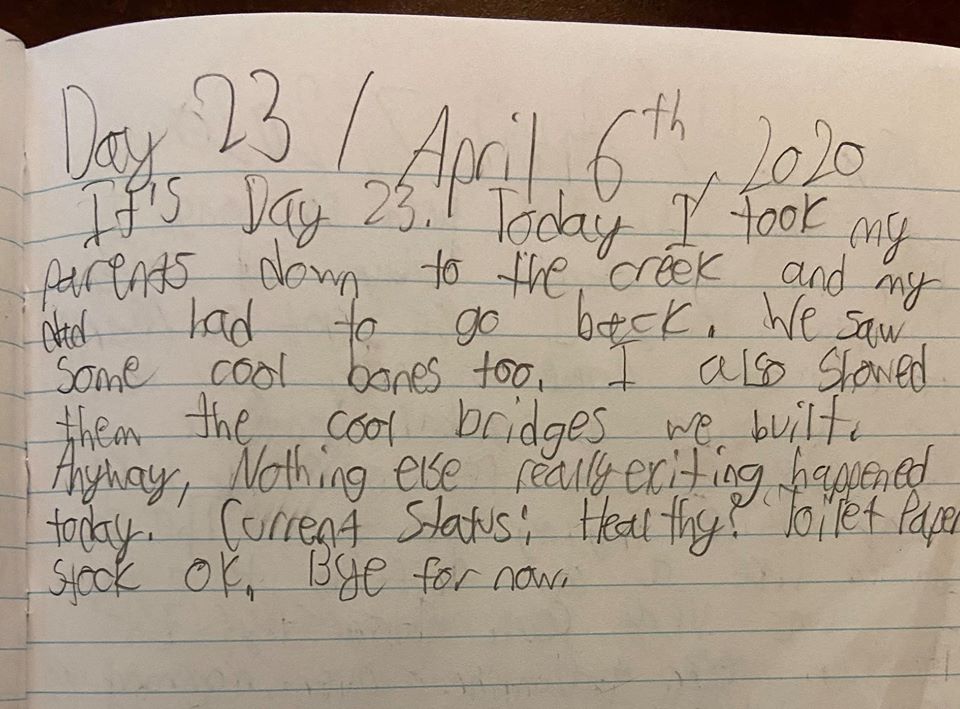 Day 23 / April 6th, 2020
It's Day 23. Today I took my
parents down to the creek and my
dad had to go back. We saw
some cool bones too. I also showed
them the cool bridges we built.
Anyway, Nothing else really exiting happened
today. Current Status: Healthy? Toilet Paper
stock OK. Bye for now.